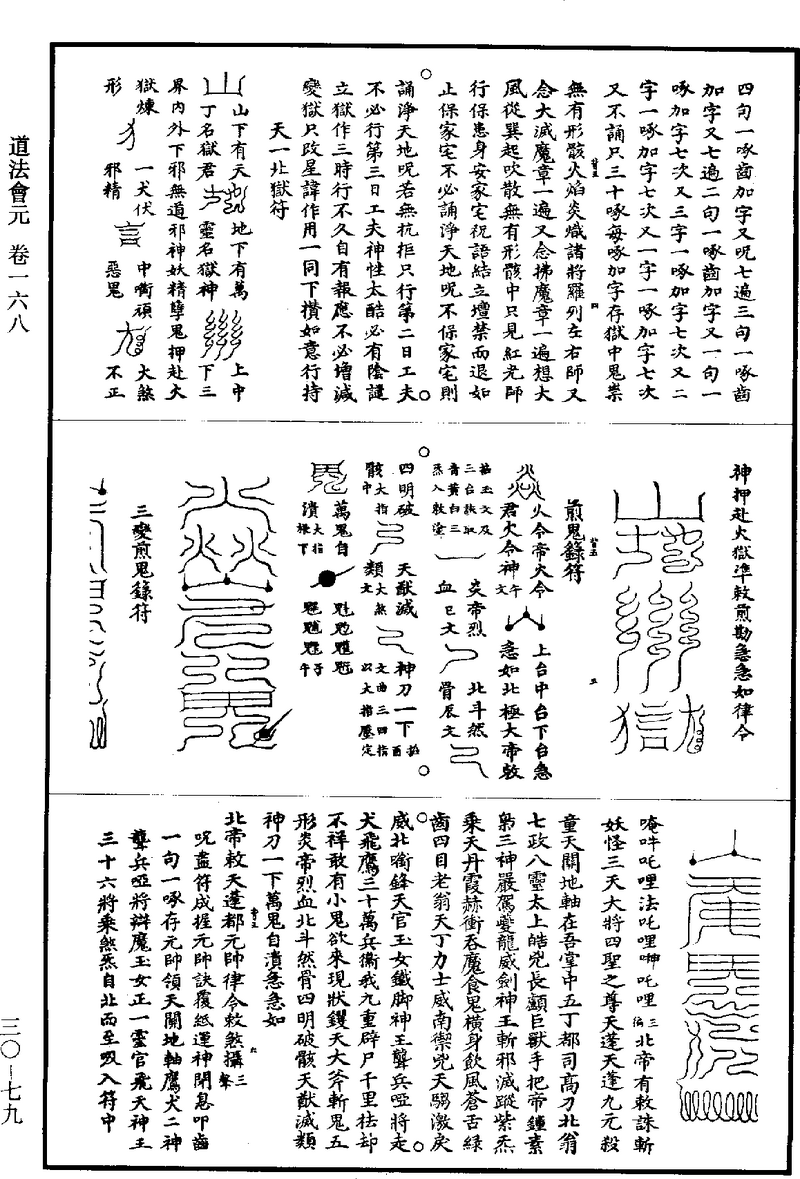 道法會元 卷一六八
四句一啄齒加字又呪七遍三句一啄齒
加字又七遍二句一啄齒加字又一句一
啄加字七次又三字一啄加字七次又二
字一啄加字七次又一字一啄加字七次
又不誦只三十啄每啄加字存獄中鬼祟
無有形骸火焰炎熾諸將羅列左右師又
念大滅魔章一遍又念拂魔章一遍想大
風從巽起吹散無有形骸中只見紅光師
行保患身安家宅祝語結立壇禁而退如
止保家宅不必誦淨天地呪不保家宅則
誦淨天地呪若無抗拒只行第二日工夫
不必行第三日工夫神性太酷必有陰譴
立獄作三時行不久自有報應不必增減
變獄只改星諱作用一同下攢如意行持
天一北獄符
山下有天 地下有萬 上中
丁名獄君 靈名獄神 下三
界內外下邪無道邪神妖精孽鬼押赴大
獄煉 一犬伏 中嚙頑 大煞
形 邪精 惡鬼 不正
神押赴火獄準敕煎勘急急如律令
煎鬼錄符
火令帝火令 上台中台下台急
君火令神午文 急如北極大帝敕
掐玉文及三台訣取青黃白三炁入敕塗
炎帝烈 北斗然
血巳文 骨辰文
四明破 天猷滅 神刀一下掐酉
骸大指中 類大煞文 文曲三四指以大指壓定
萬鬼自 魁魓
潰大指掾下 子午
三變煎鬼錄符
唵吽吒哩法吒哩吒哩三徧北帝有敕誅斬
妖怪三天大將四聖之尊天蓬天蓬九元殺
童天關地軸在吾掌中五丁都司高刀北翁
七政八靈太上皓兇長顱巨獸手把帝鍾素
梟三神嚴駕夔龍威劍神王斬邪滅蹤紫炁
乘天丹霞赫衝吞魔食鬼橫身飲風蒼舌綠
齒四目老翁天丁力士威南禦兇天騶激戾
威北啣鋒天官玉女鐵脚神王聾兵啞將走
犬飛鷹三十萬兵衛我九重辟尸千里袪却
不祥敢有小鬼欲來現狀钁天大斧斬鬼五
形炎帝烈血北斗然骨四明破骸天猷滅類
神刀一下萬鬼自潰急急如
北帝敕天蓬都元帥律令敕煞攝三聲
呪畢符成握元帥訣覆紙運神閉息叩齒
一句一啄存元帥領天關地軸鷹犬二神
聾兵啞將辯魔玉女正一靈官飛天神王
三十六將乘煞炁自北而至吸入符中
三〇—七九